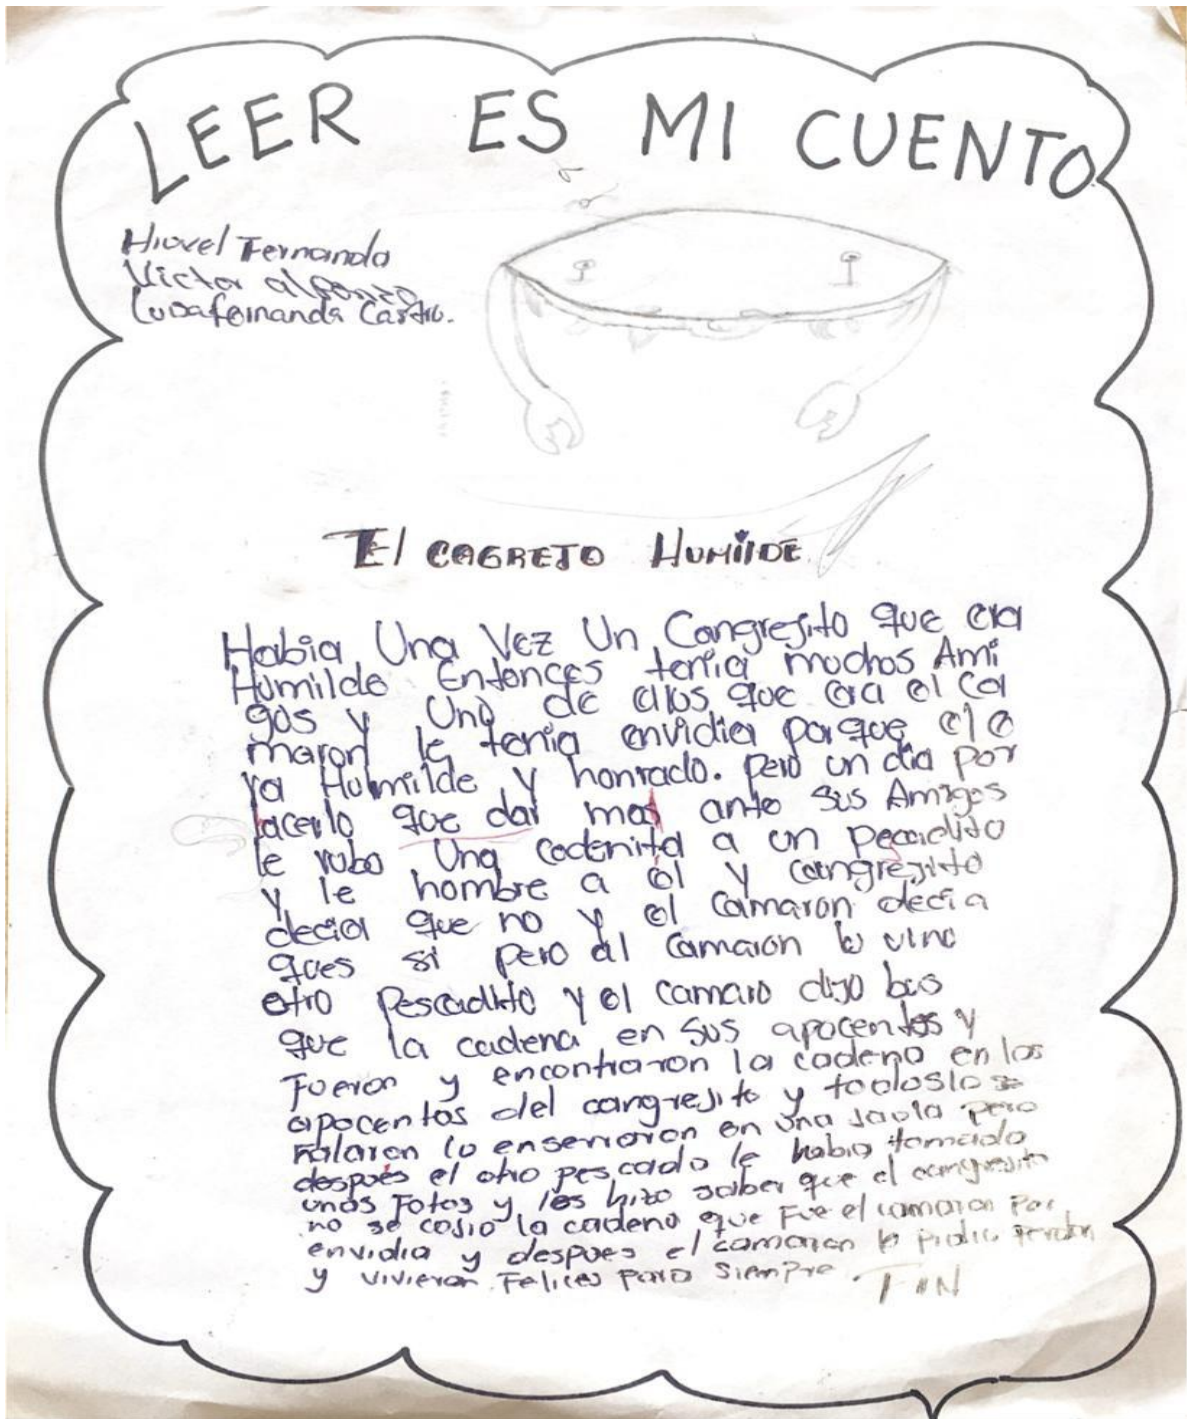 LEER ES MI CUENTO
Fernanda
Victor alfonzo
Luisa fernanda Castro.
El CAGREJO HUMIlDE
Habia Una Vez Un Cangrejito que era
Humilde Entonces tenia muchos Ami
gos y Uno de ellos que era el Ca
maron le tenia envidia porque el e
ra Humilde y honrado. pero un dia por
acerlo que dar mas ante sus Amigos
le robo Una cadenita a un pecadito
y le hombre a el y cangrejito
decia que no y el camaron decia
ques si pero al camaron lo vino
otro Pescadito y el camaro dijo bus
que la cadena en sus apocentos y
Fueron y encontraron la cadena en los
apocentos del cangrejito y todoslo
lo enserraron en una jaula pero
despues el otro pescado le habia tomado
unas Fotos y les hizo saber que el cangrejito
no se cojio la cadena que Fue el camaron Por
envidia y despues el camaron le pidio Perdon
y vivieron Felices para siempre. FIN